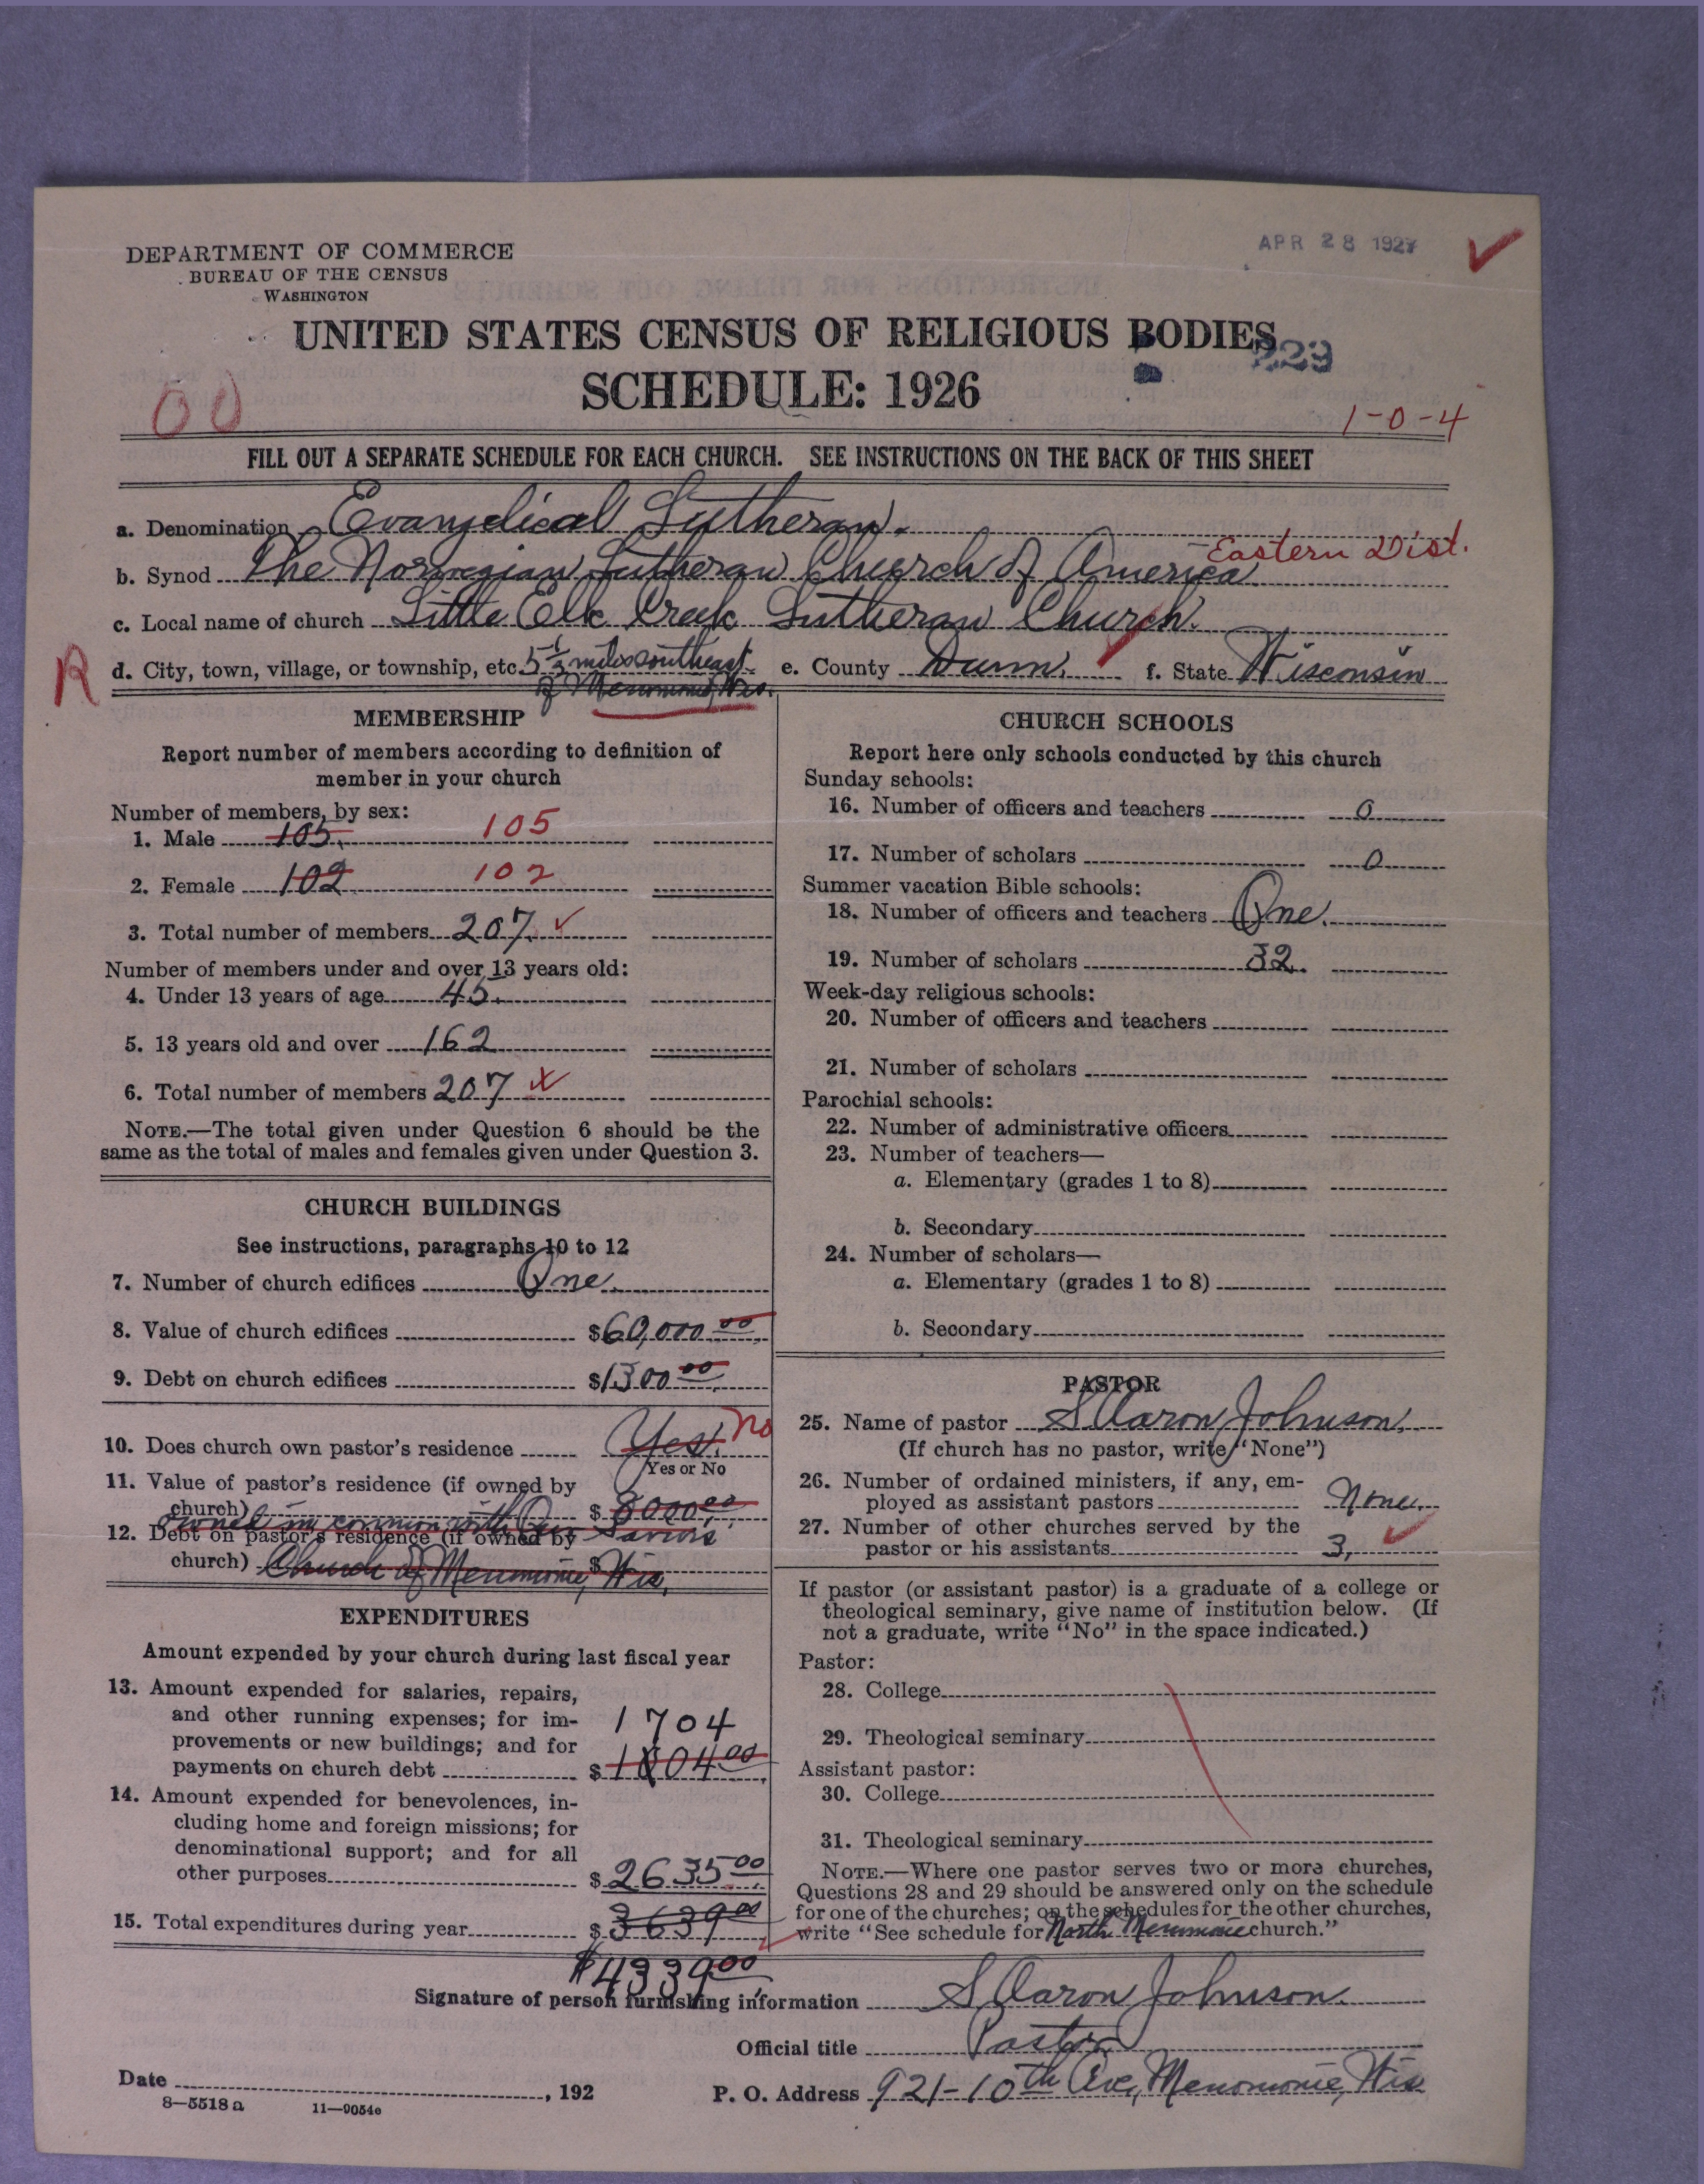 DEPARTMENT OF COMMERCE
BUREAU OF THE CENSUS
WASHINGTON
APR 28 1927
UNITED STATES CENSUS OF RELIGIOUS BODIES
229
SCHEDULE: 1926
00
1-0-4
FILL OUT A SEPARATE SCHEDULE FOR EACH CHURCH. SEE INSTRUCTIONS ON THE BACK OF THIS SHEET
a. Denomination Evangelical Lutheran.
Eastern Dist.
b. Synod The Norwegian Lutheran Church of America
c. Local name of church Little Elk Creek Lutheran Church.
R
d. City, town, village, or township, etc. 5 1/2 miles southeast e. County Dunn. f. State Wisconsin
of Menomonie, Wis.
MEMBERSHIP
Report number of members according to definition of
member in your church
Number of members, by sex:
1. Male 105. 105
2. Female 102 102
3. Total number of members 207
Number of members under and over 13 years old:
4. Under 13 years of age 45.
5. 13 years old and over 162
6. Total number of members 207
NOTE.—The total given under Question 6 should be the
same as the total of males and females given under Question 3.
CHURCH BUILDINGS
See instructions, paragraphs 10 to 12
7. Number of church edifices One.
8. Value of church edifices $60,000.00
9. Debt on church edifices $1300.00
10. Does church own pastor's residence Yes. No
Yes or No
11. Value of pastor's residence (if owned by
church) $8000.00
owned in common with Our Saviors'
12. Debt on pastor's residence (if owned by
church) Church of Menomonie, Wis. $
EXPENDITURES
Amount expended by your church during last fiscal year
13. Amount expended for salaries, repairs,
and other running expenses; for im-
provements or new buildings; and for
1704
payments on church debt $1004.00
14. Amount expended for benevolences, in-
cluding home and foreign missions; for
denominational support; and for all
other purposes $2635.00
15. Total expenditures during year $3639.00
$4339.00
CHURCH SCHOOLS
Report here only schools conducted by this church
Sunday schools:
16. Number of officers and teachers 0
17. Number of scholars 0
Summer vacation Bible schools:
18. Number of officers and teachers One.
19. Number of scholars 32.
Week-day religious schools:
20. Number of officers and teachers
21. Number of scholars
Parochial schools:
22. Number of administrative officers
23. Number of teachers—
a. Elementary (grades 1 to 8)
b. Secondary
24. Number of scholars—
a. Elementary (grades 1 to 8)
b. Secondary
PASTOR
25. Name of pastor S Aaron Johnson.
(If church has no pastor, write "None")
26. Number of ordained ministers, if any, em-
ployed as assistant pastors None.
27. Number of other churches served by the
pastor or his assistants 3,
If pastor (or assistant pastor) is a graduate of a college or
theological seminary, give name of institution below. (If
not a graduate, write "No" in the space indicated.)
Pastor:
28. College
29. Theological seminary
Assistant pastor:
30. College
31. Theological seminary
NOTE.—Where one pastor serves two or more churches,
Questions 28 and 29 should be answered only on the schedule
for one of the churches; on the schedules for the other churches,
write "See schedule for North Menomonie church."
Signature of person furnishing information S Aaron Johnson.
Official title Pastor
Date , 192
P. O. Address 921-10th Ave, Menomonie, Wis
8-5518 a 11-9054e